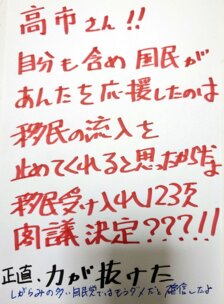 高市さん!!
自分も含め国民が
あんたを応援したのは
移民の流入を
止めてくれると思ったからだよ
移民受け入れ123万
閣議決定???!!
正直、力が抜けた
しがらみの多い自民党ではもうダメだと確信したよ